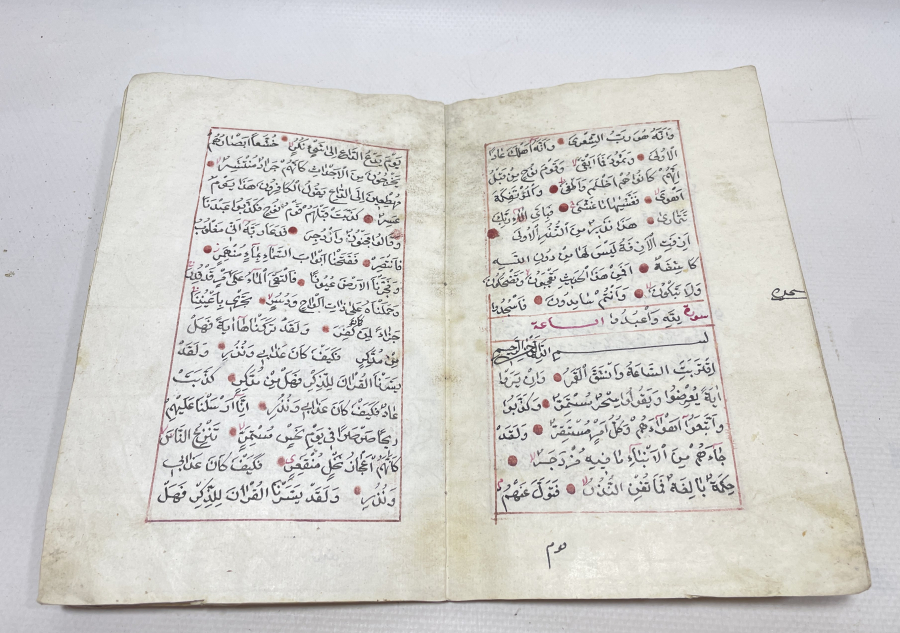 وَاَنَّهُ هُوَ رَبُّ الشِّعْرٰى وَاَنَّهُ اَهْلَكَ عَادًا
الْاُولٰى وَثَمُودَ فَمَا اَبْقٰى وَقَوْمَ نُوحٍ مِنْ قَبْلُ
اِنَّهُمْ كَانُوا هُمْ اَظْلَمَ وَاَطْغٰى وَالْمُؤْتَفِكَةَ
اَهْوٰى فَغَشّٰيهَا مَا غَشّٰى فَبِاَيِّ اٰلَاءِ رَبِّكَ
تَتَمَارٰى هٰذَا نَذِيرٌ مِنَ النُّذُرِ الْاُولٰى
اَزِفَتِ الْاٰزِفَةُ لَيْسَ لَهَا مِنْ دُونِ اللّٰهِ
كَاشِفَةٌ اَفَمِنْ هٰذَا الْحَدِيثِ تَعْجَبُونَ وَتَضْحَكُونَ
وَلَا تَبْكُونَ وَاَنْتُمْ سَامِدُونَ فَاسْجُدُوا
سورة لِلّٰهِ وَاعْبُدُوا الساعة
بسم الله الرحمن الرحيم
اِقْتَرَبَتِ السَّاعَةُ وَانْشَقَّ الْقَمَرُ وَاِنْ يَرَوْا
اٰيَةً يُعْرِضُوا وَيَقُولُوا سِحْرٌ مُسْتَمِرٌّ وَكَذَّبُوا
وَاتَّبَعُوا اَهْوَاءَهُمْ وَكُلُّ اَمْرٍ مُسْتَقِرٌّ وَلَقَدْ
جَاءَهُمْ مِنَ الْاَنْبَاءِ مَا فِيهِ مُزْدَجَرٌ
حِكْمَةٌ بَالِغَةٌ فَمَا تُغْنِ النُّذُرُ فَتَوَلَّ عَنْهُمْ
يوم
سجده
يَوْمَ يَدْعُ الدَّاعِ اِلٰى شَيْءٍ نُكُرٍ خُشَّعًا اَبْصَارُهُمْ
يَخْرُجُونَ مِنَ الْاَجْدَاثِ كَاَنَّهُمْ جَرَادٌ مُنْتَشِرٌ
مُهْطِعِينَ اِلَى الدَّاعِ يَقُولُ الْكَافِرُونَ هٰذَا يَوْمٌ
عَسِرٌ كَذَّبَتْ قَبْلَهُمْ قَوْمُ نُوحٍ فَكَذَّبُوا عَبْدَنَا
وَقَالُوا مَجْنُونٌ وَازْدُجِرَ فَدَعَا رَبَّهُ اَنِّي مَغْلُوبٌ
فَانْتَصِرْ فَفَتَحْنَا اَبْوَابَ السَّمَاءِ بِمَاءٍ مُنْهَمِرٍ
وَفَجَّرْنَا الْاَرْضَ عُيُونًا فَالْتَقَى الْمَاءُ عَلٰى اَمْرٍ قَدْ قُدِرَ
وَحَمَلْنَاهُ عَلٰى ذَاتِ اَلْوَاحٍ وَدُسُرٍ تَجْرِي بِاَعْيُنِنَا
جَزَاءً لِمَنْ كَانَ كُفِرَ وَلَقَدْ تَرَكْنَاهَا اٰيَةً فَهَلْ
مِنْ مُدَّكِرٍ فَكَيْفَ كَانَ عَذَابِي وَنُذُرِ وَلَقَدْ
يَسَّرْنَا الْقُرْاٰنَ لِلذِّكْرِ فَهَلْ مِنْ مُدَّكِرٍ كَذَّبَتْ
عَادٌ فَكَيْفَ كَانَ عَذَابِي وَنُذُرِ اِنَّا اَرْسَلْنَا عَلَيْهِمْ
رِيحًا صَرْصَرًا فِي يَوْمِ نَحْسٍ مُسْتَمِرٍّ تَنْزِعُ النَّاسَ
كَاَنَّهُمْ اَعْجَازُ نَخْلٍ مُنْقَعِرٍ فَكَيْفَ كَانَ عَذَابِي
وَنُذُرِ وَلَقَدْ يَسَّرْنَا الْقُرْاٰنَ لِلذِّكْرِ فَهَلْ